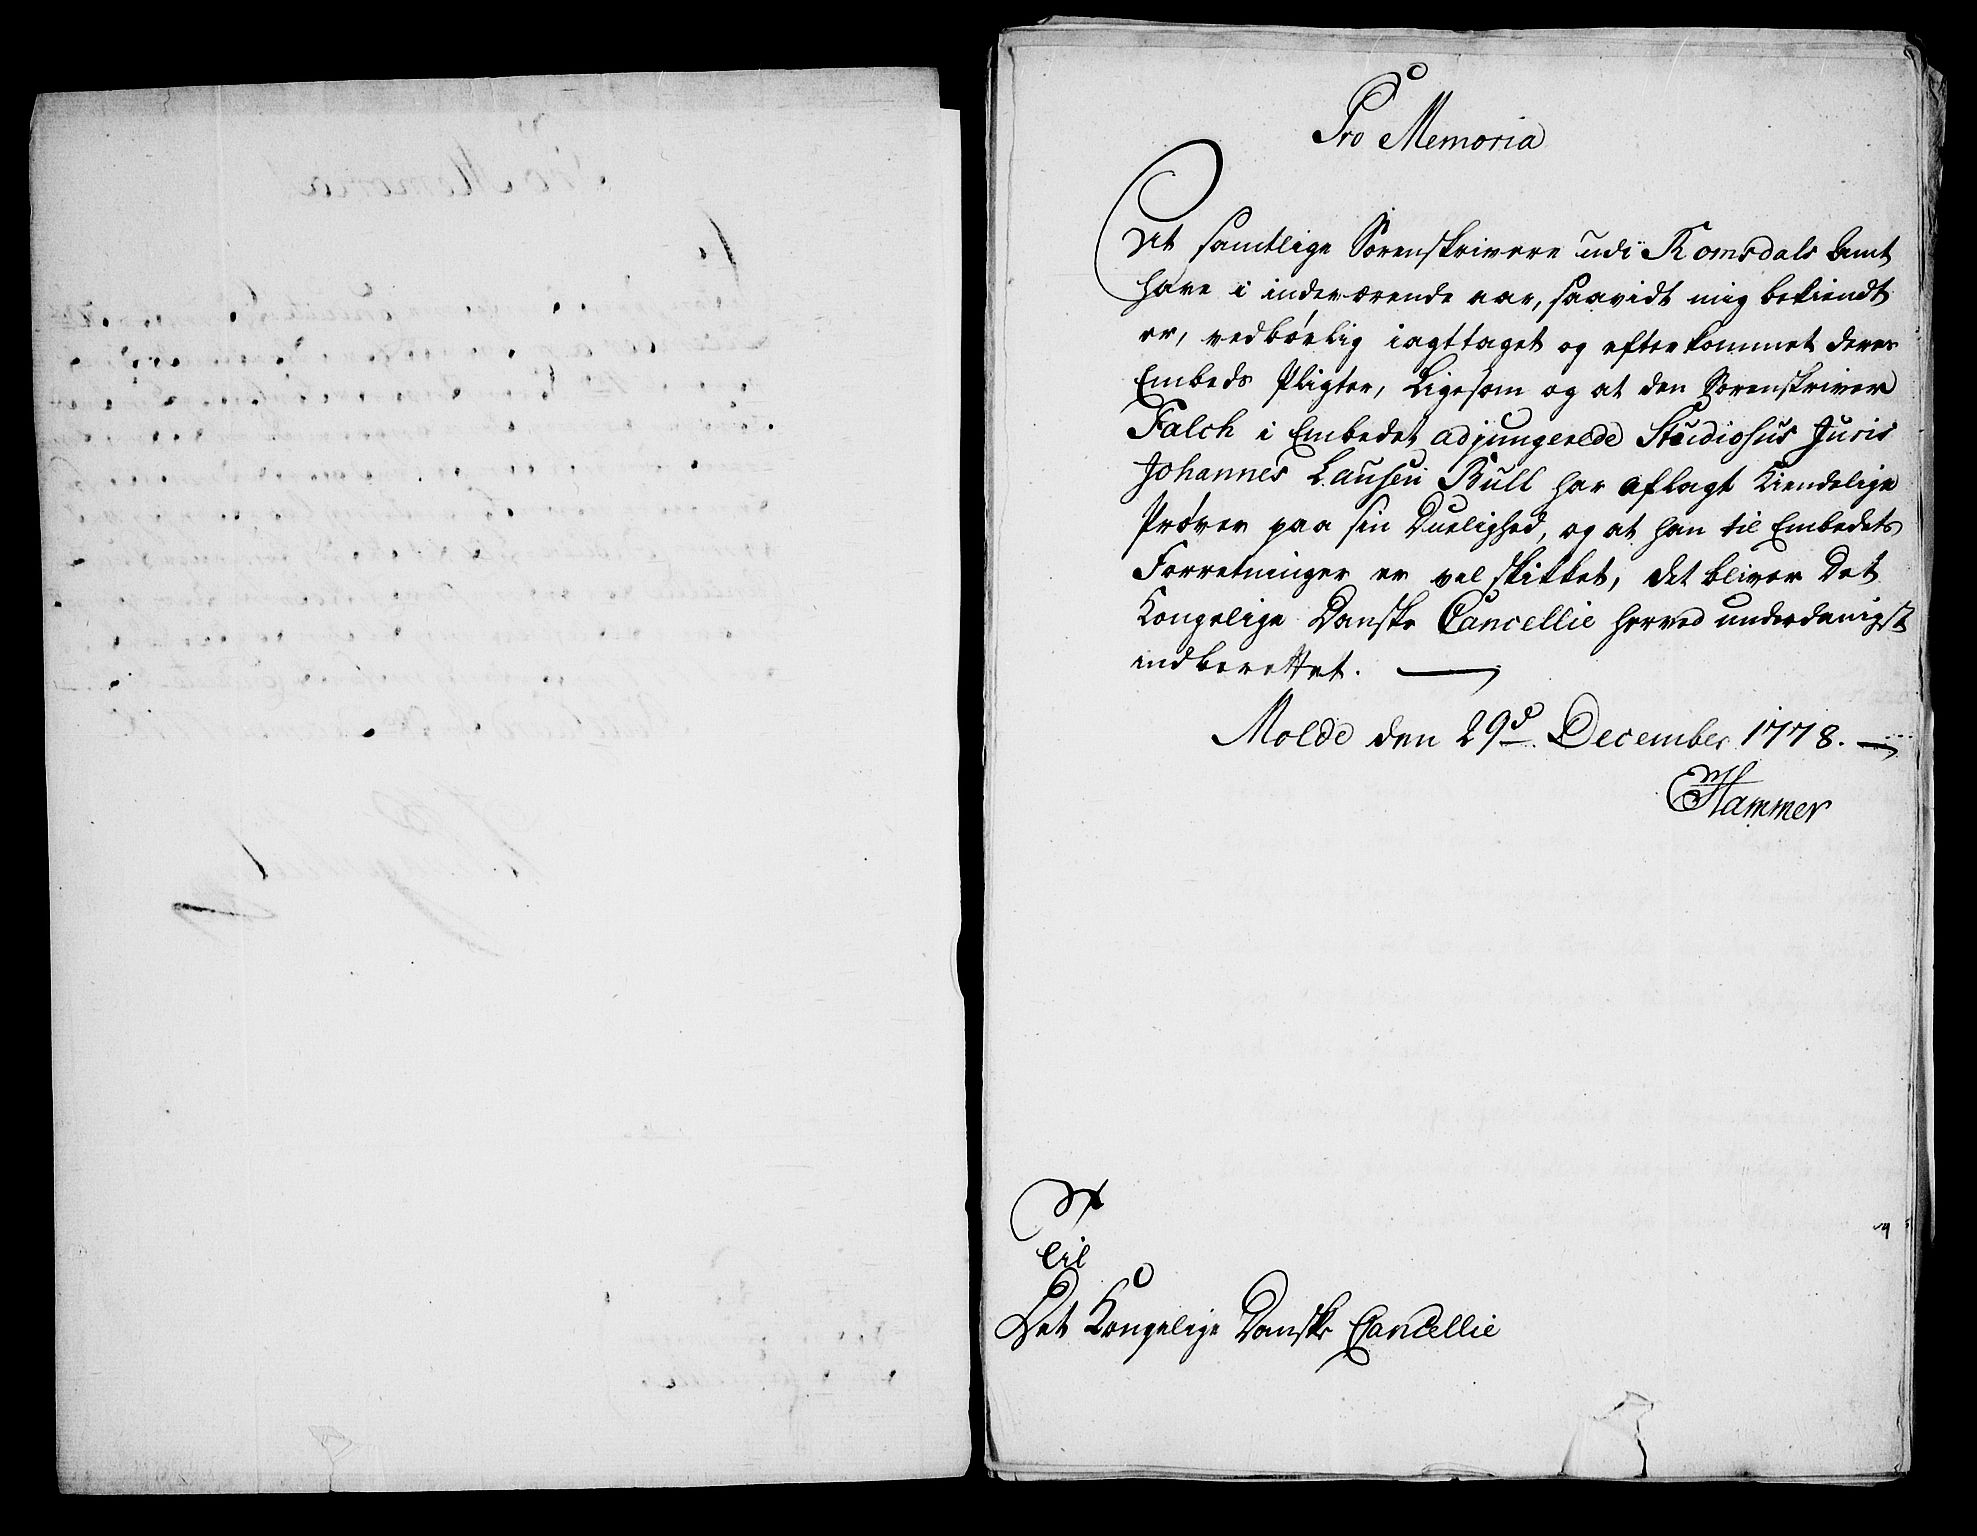 Pro Memoria
At samtlige Sorenskrivere udi Romsdals Amt
have i inderværende aar, saavidt mig bekiendt
er, vedbørlig iagttaget og efterkommet deres
Embeds Pligter, Ligesom og at den Sorenskriver
Falch i Embedet adjungerede Studiosus Juris
Johannes Lausen Bull har aflagt Kiendelige
Prøver paa sin Duelighed, og at han til Embedets
Forretninger er vel skikket, det bliver Det
Kongelige Danske Cancellie herved underdanigst
indberettet.
Molde den 29d. December 1778.
Hammer
Til
Det Kongelige Danske Cancellie